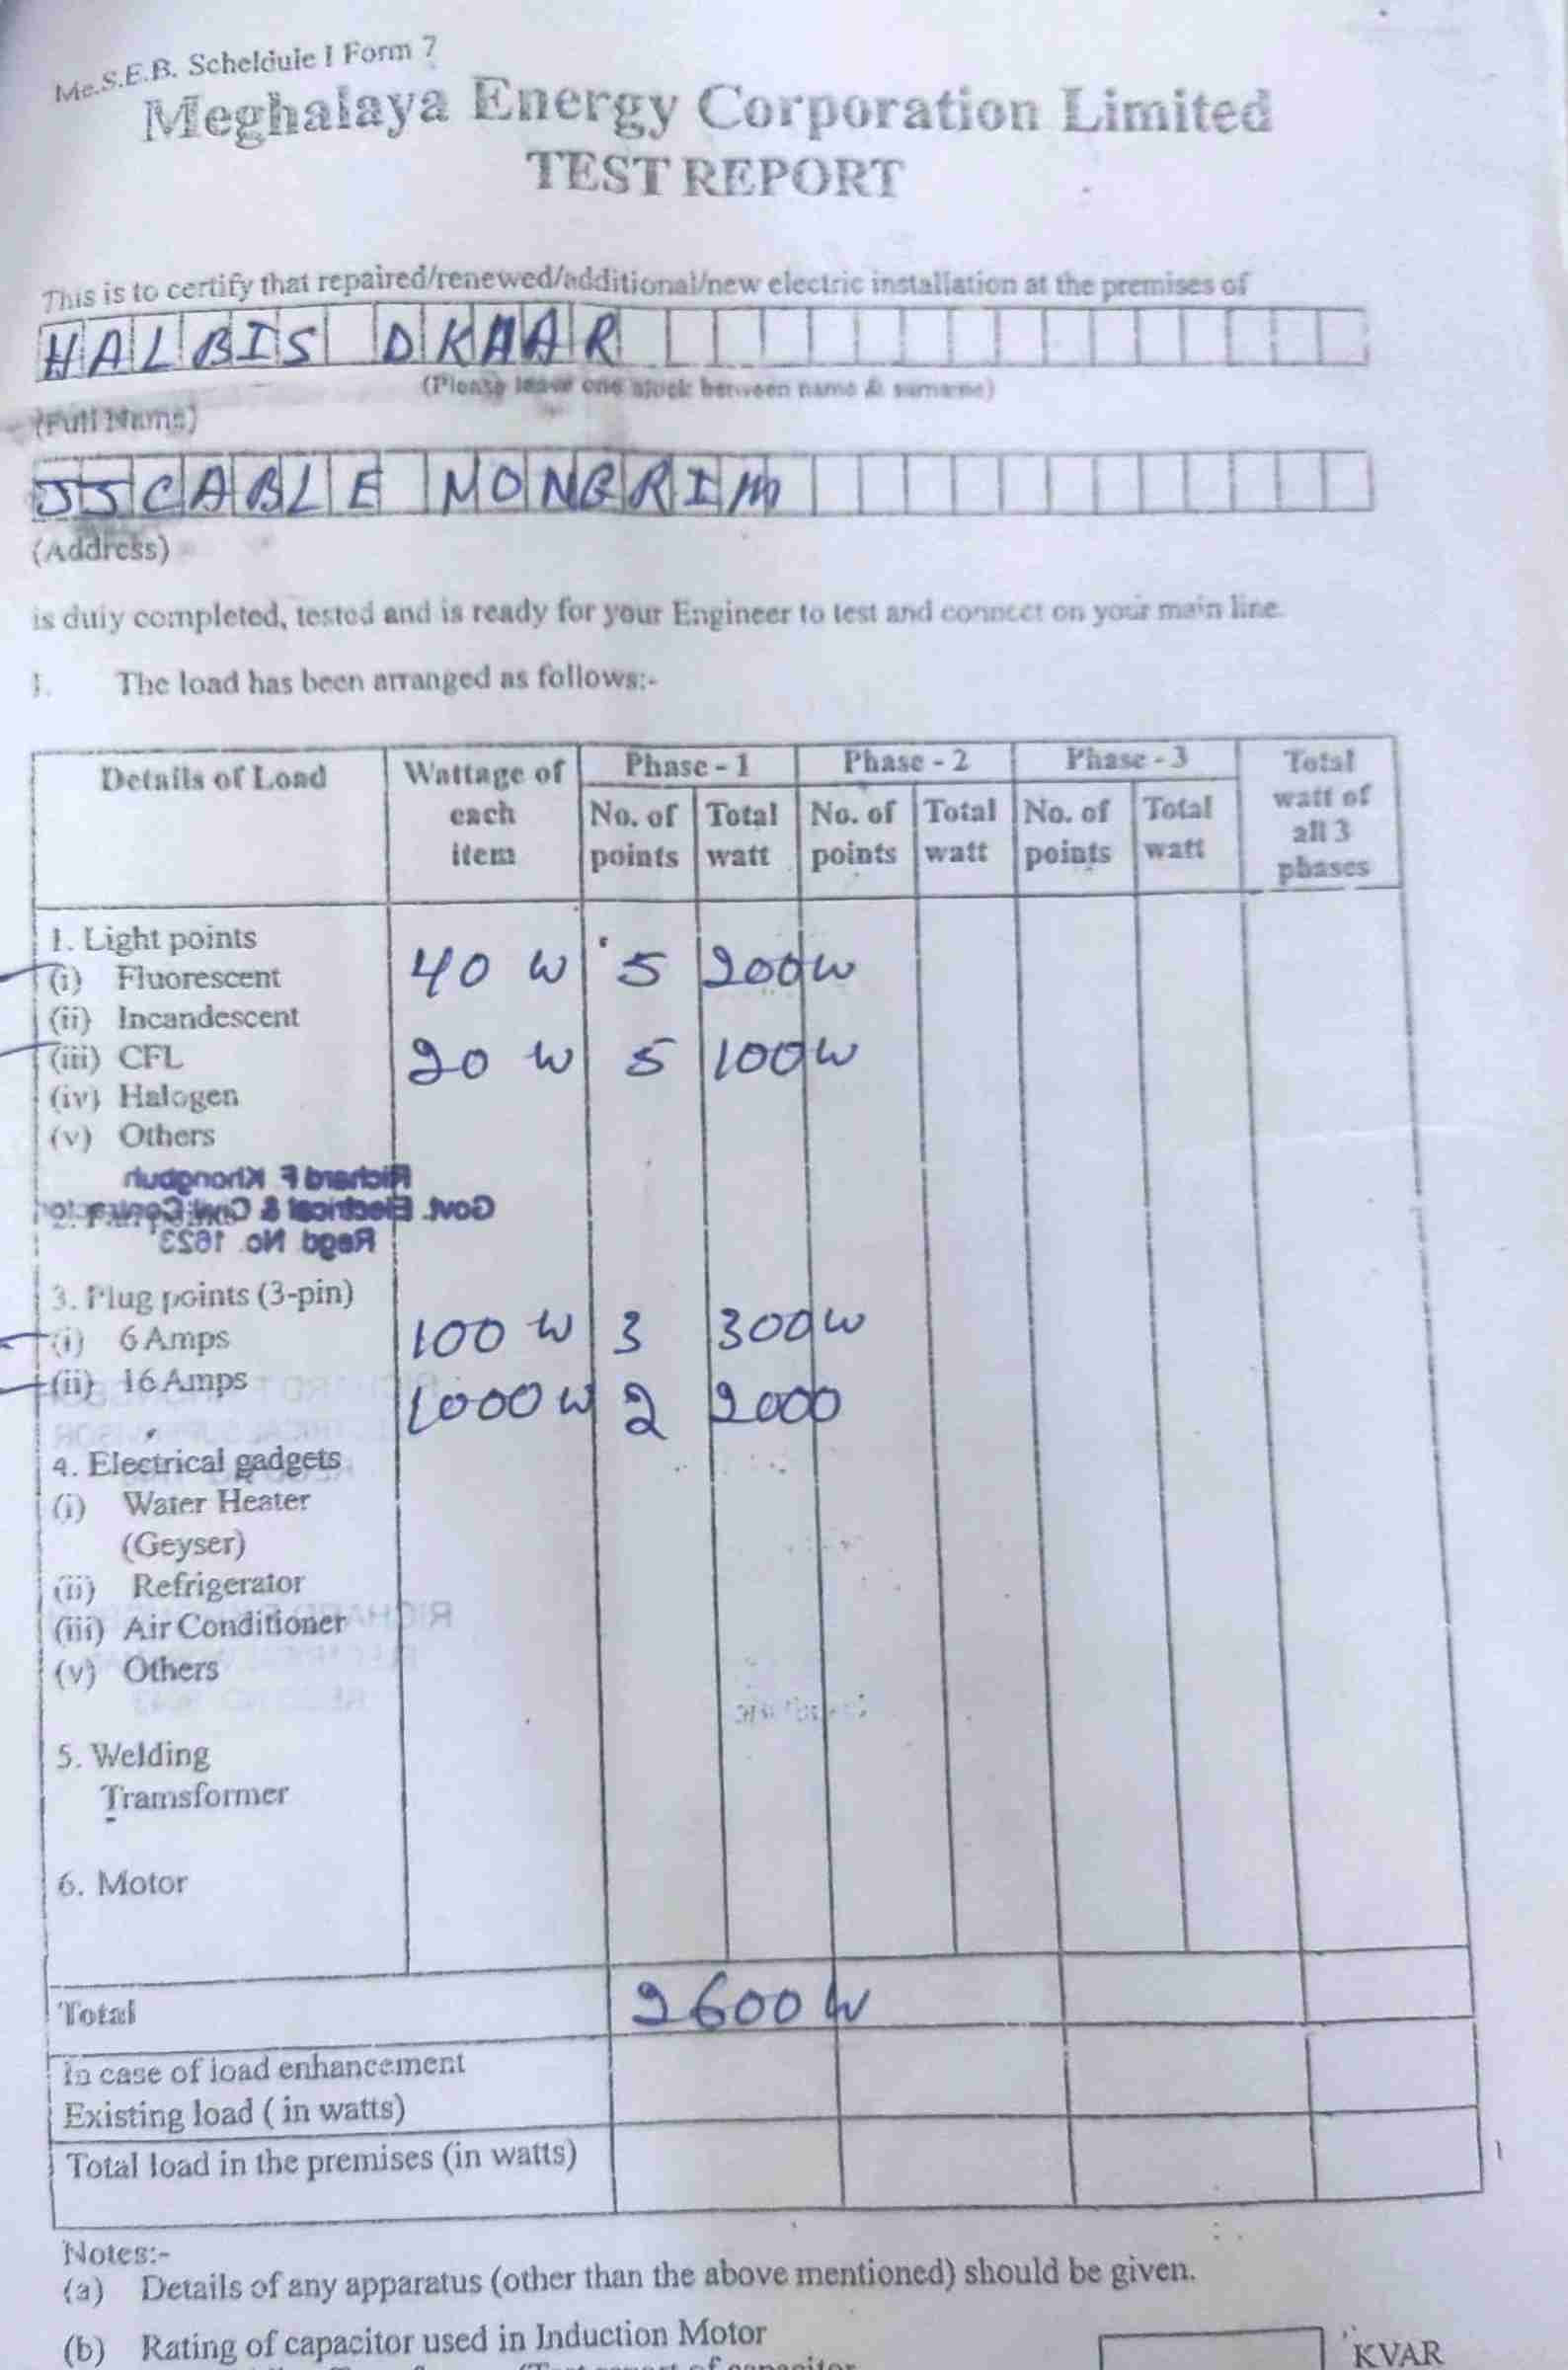 Me.S.E.B. Scheldule I Form 7
Meghalaya Energy Corporation Limited
TEST REPORT
This is to certify that repaired/renewed/additional/new electric installation at the premises of
HALBIS DKHAR
(Please leave one block between name & surname)
(Full Name)
JJ CABLE NONGRIM
(Address)
is duly completed, tested and is ready for your Engineer to test and connect on your main line.
1. The load has been arranged as follows:-
Details of Load Wattage of each item Phase - 1 Phase - 2 Phase - 3 Total watt of all 3 phases
No. of points Total watt No. of points Total watt No. of points Total watt
1. Light points
(i) Fluorescent 40 W 5 200W
(ii) Incandescent
(iii) CFL 20 W 5 100W
(iv) Halogen
(v) Others
Richard F Khongbuh
Govt. Electrical & Civil Contractor
Regd No. 1623
3. Plug points (3-pin)
(i) 6 Amps 100 W 3 300W
(ii) 16 Amps 1000 W 2 2000
4. Electrical gadgets
(i) Water Heater
(Geyser)
(ii) Refrigerator
(iii) Air Conditioner
(v) Others
5. Welding
Tramsformer
6. Motor
Total 2600 W
In case of load enhancement
Existing load ( in watts)
Total load in the premises (in watts)
Notes:-
(a) Details of any apparatus (other than the above mentioned) should be given.
(b) Rating of capacitor used in Induction Motor KVAR